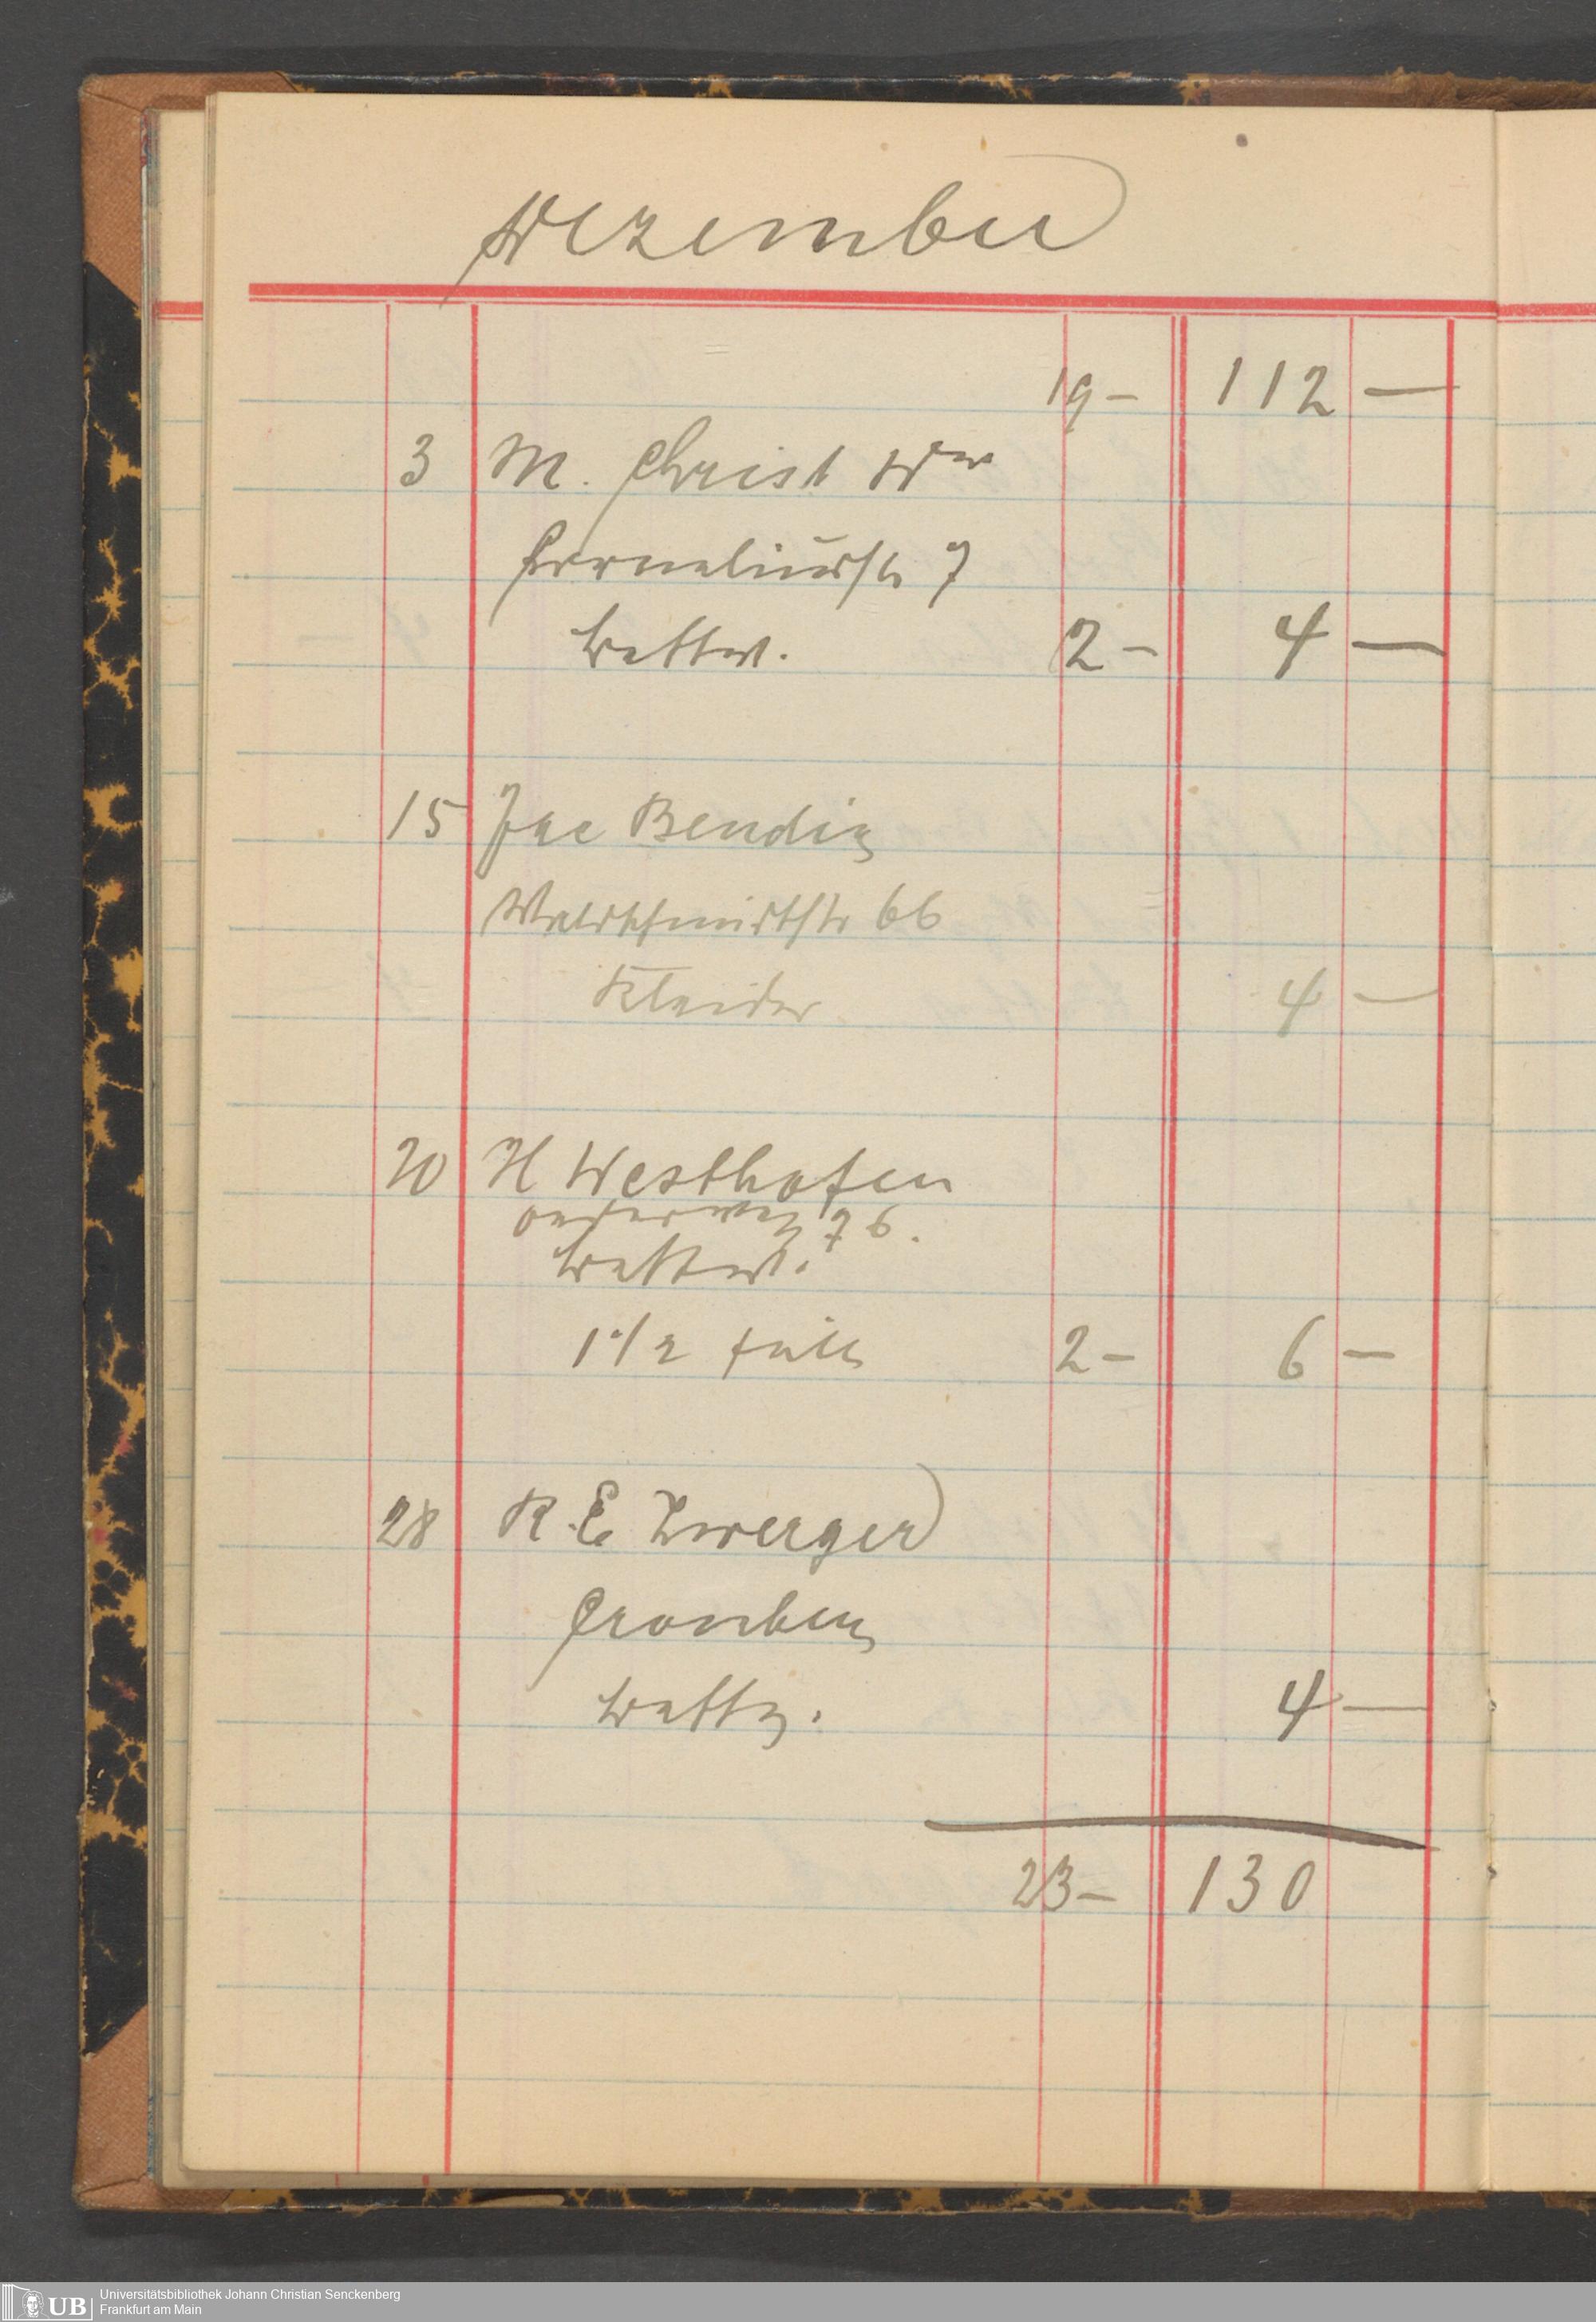 Dezember
19 – 112 —
3 M. Christ Ww
Corneliusstr 7
Bettw. 2 – 4 —
15 Jac Bendix
Waldschmidtstr 66
Kleider 4 —
20 H Westhofen
Oederweg 76.
Bettw.
1 1/2 füll 2 – 6 —
28 R. E Zwerger
Cronberg
4 —
23 – 130
Universitätsbibliothek Johann Christian Senckenberg
Frankfurt am Main
UB